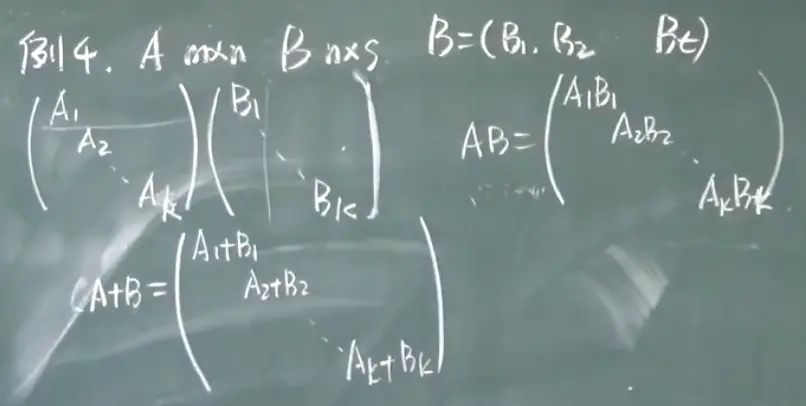 例4. A m×n B n×s B=(B₁, B₂ Bt)
(A₁ A₂ ⋱ Ak)(B₁ ⋱ Bk) AB=(A₁B₁ A₂B₂ ⋱ AkBk)
A+B=(A₁+B₁ A₂+B₂ ⋱ Ak+Bk)